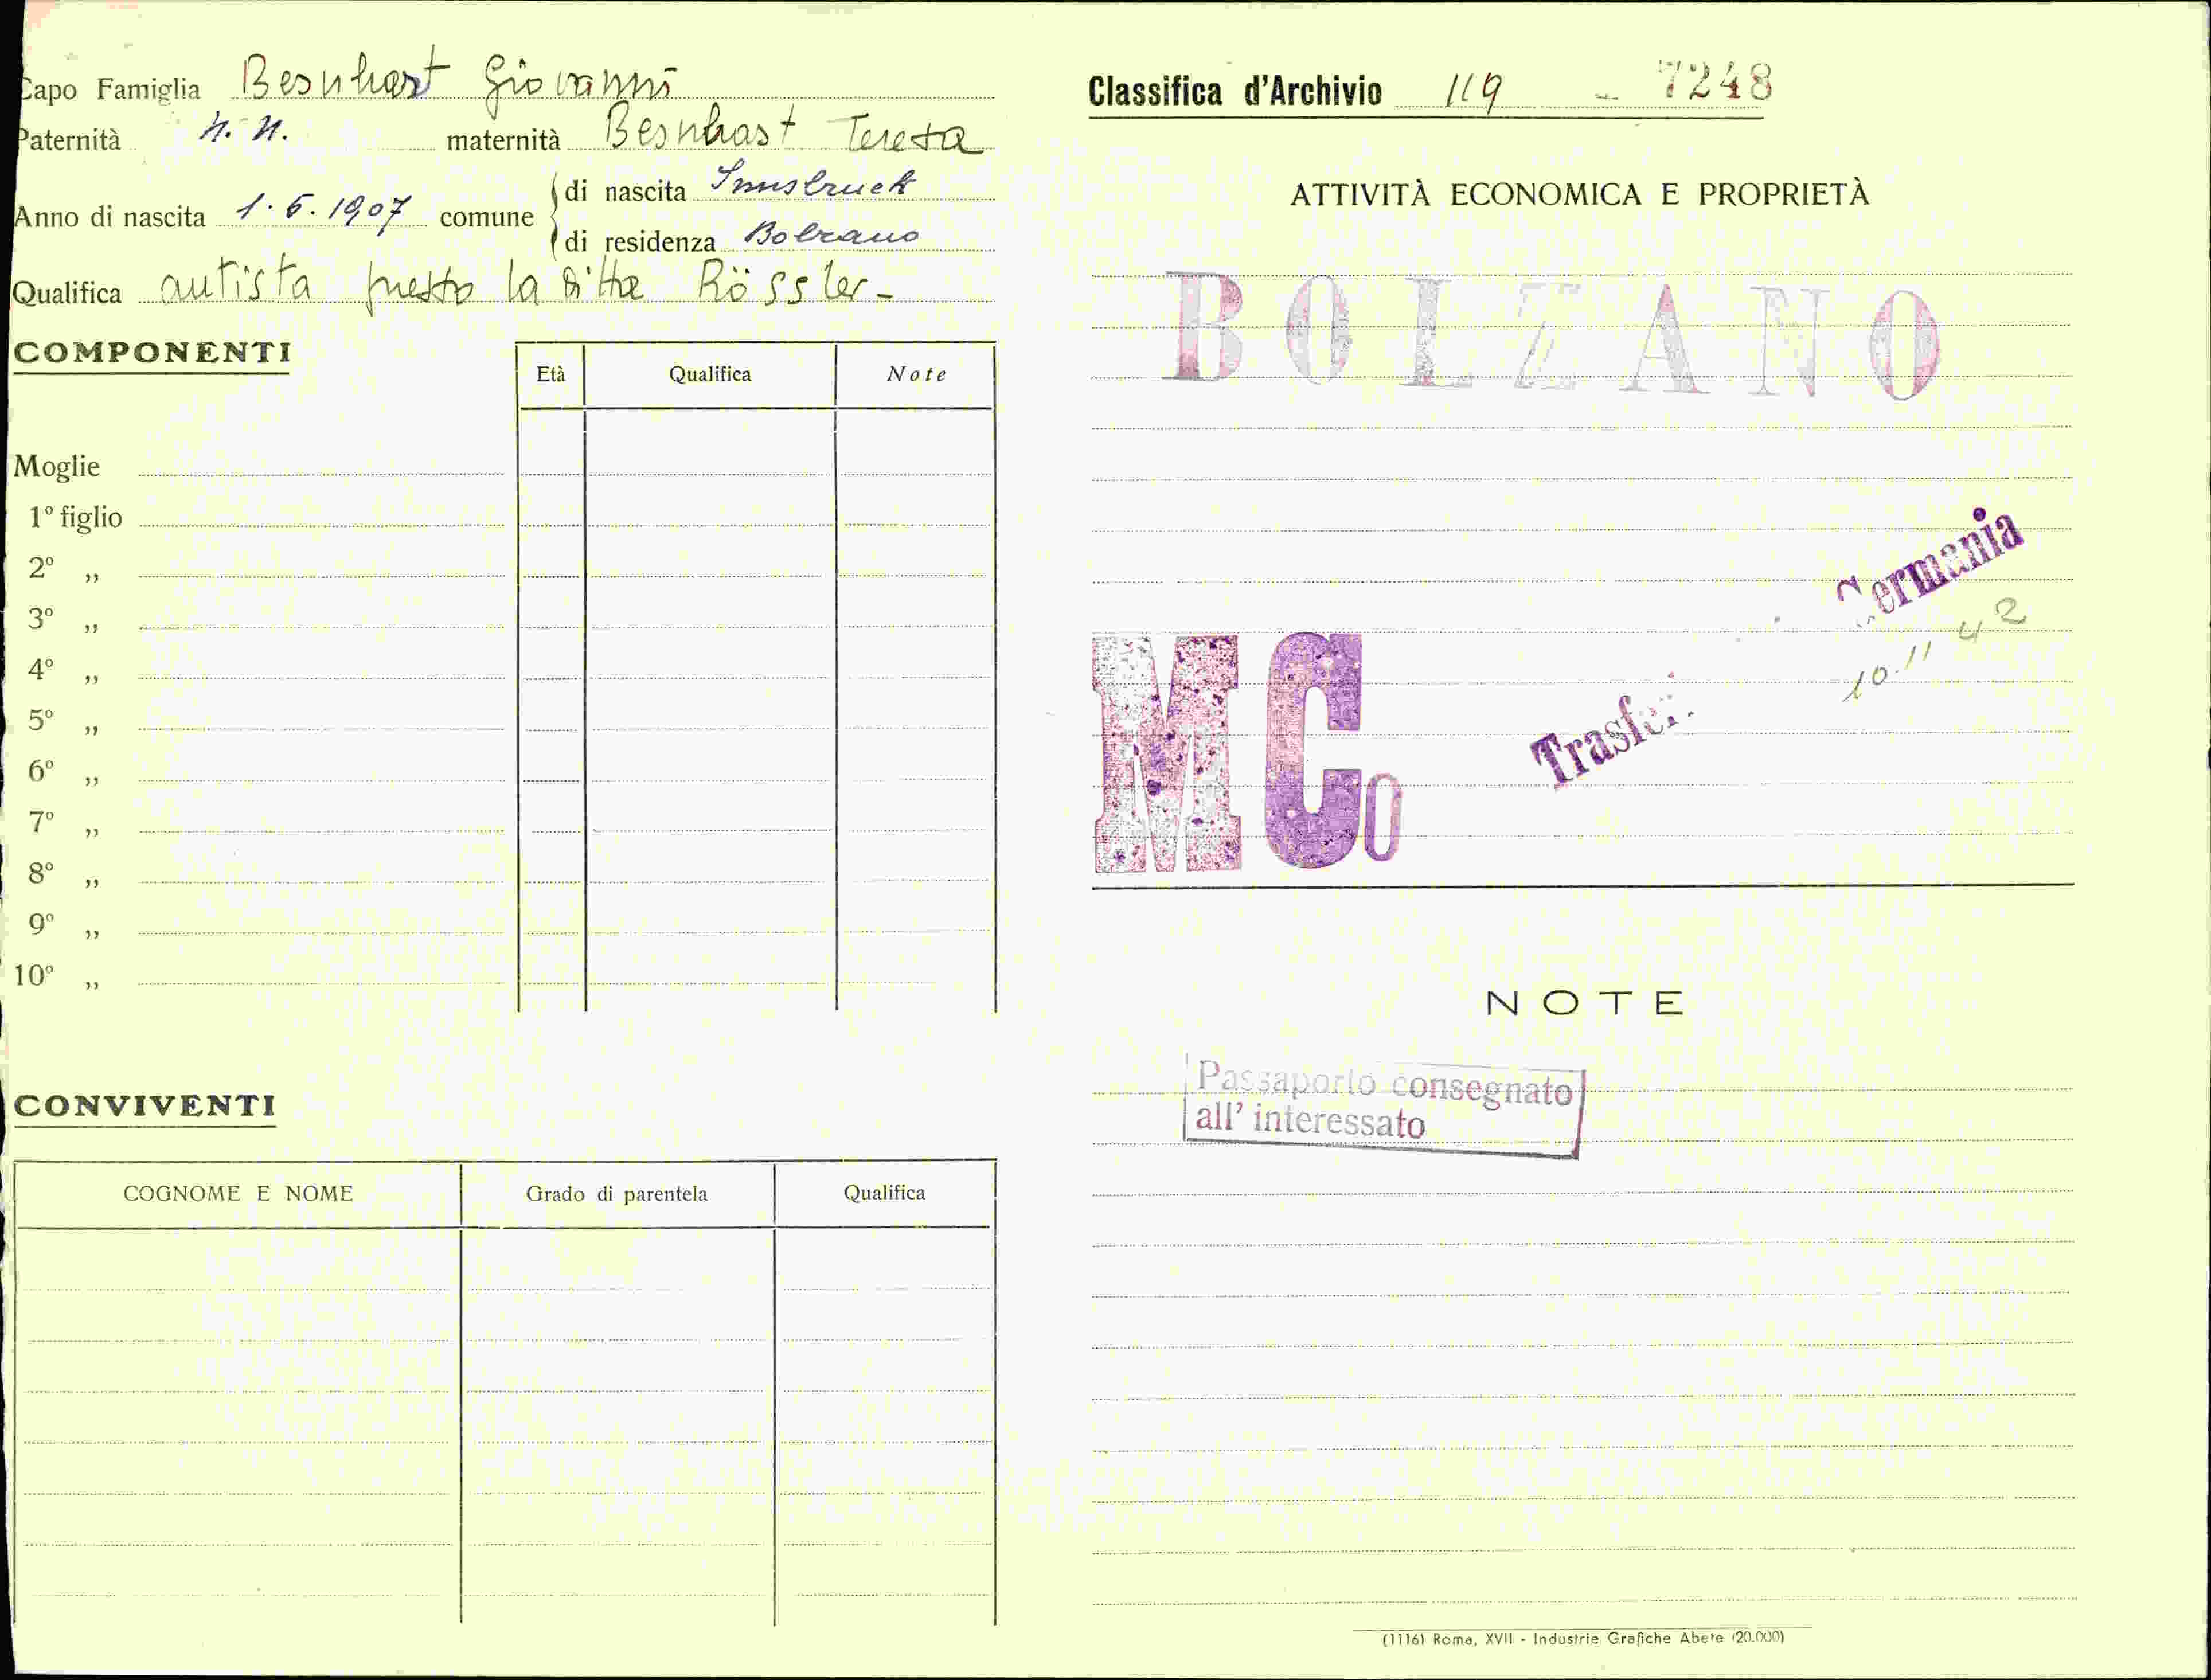 Capo Famiglia Bernhart Giovanni
Paternità N. N. maternità Bernhart Teresa
Anno di nascita 1. 6. 1907 comune di nascita Innsbruck
di residenza Bolzano
Qualifica autista presso la ditta Rössler -
COMPONENTI
Età Qualifica Note
Moglie
1º figlio
2º „
3º „
4º „
5º „
6º „
7º „
8º „
9º „
10º „
CONVIVENTI
COGNOME E NOME Grado di parentela Qualifica
Classifica d'Archivio 119 - 7248
ATTIVITÀ ECONOMICA E PROPRIETÀ
BOLZANO
Germania
10 11 42
MCo
NOTE
Passaporto consegnato
all' interessato
(1116) Roma, XVII - Industrie Grafiche Abete (20.000)